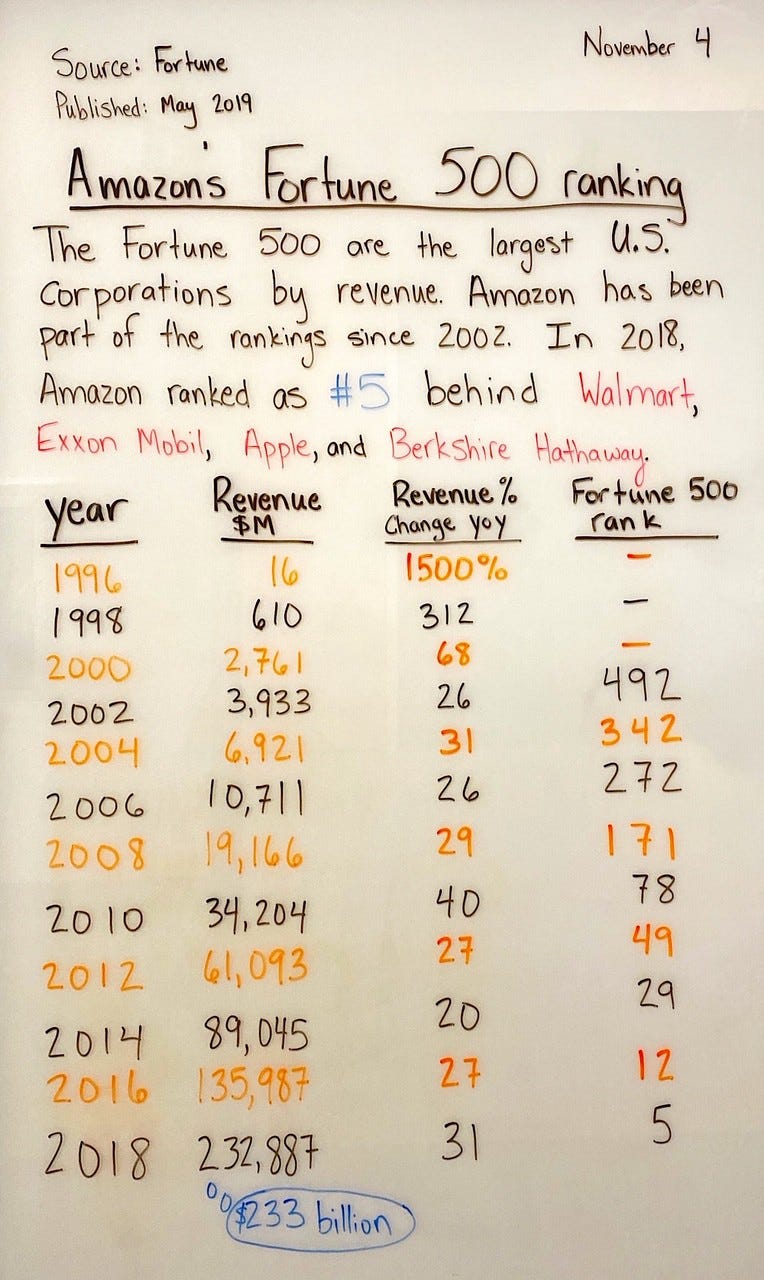 November 4
Source: Fortune
Published: May 2019
Amazon's Fortune 500 ranking
The Fortune 500 are the largest U.S.
Corporations by revenue. Amazon has been
part of the rankings since 2002. In 2018,
Amazon ranked as #5 behind Walmart,
Exxon Mobil, Apple, and Berkshire Hathaway.
year Revenue $M Revenue % Change yoy Fortune 500 rank
1996 16 1500% –
1998 610 312 –
2000 2,761 68 –
2002 3,933 26 492
2004 6,921 31 342
2006 10,711 26 272
2008 19,166 29 171
2010 34,204 40 78
2012 61,093 27 49
2014 89,045 20 29
2016 135,987 27 12
2018 232,887 31 5
$233 billion